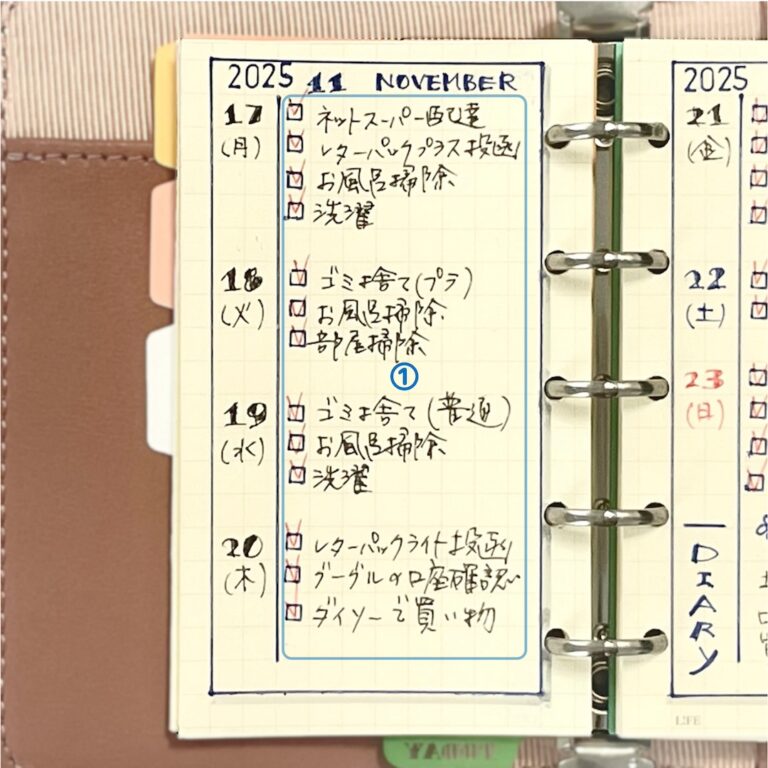 2025 11 NOVEMBER
17
(月)
ネットスーパー配達
レターパックプラス投函
お風呂掃除
洗濯
18
(火)
ゴミ捨て(プラ)
お風呂掃除
部屋掃除
①
19
(水)
ゴミ捨て(普通)
お風呂掃除
洗濯
20
(木)
レターパックライト投函
グーグルの口座確認
ダイソーで買い物
2025
21
(金)
22
(土)
23
(日)
DIARY
LIFE